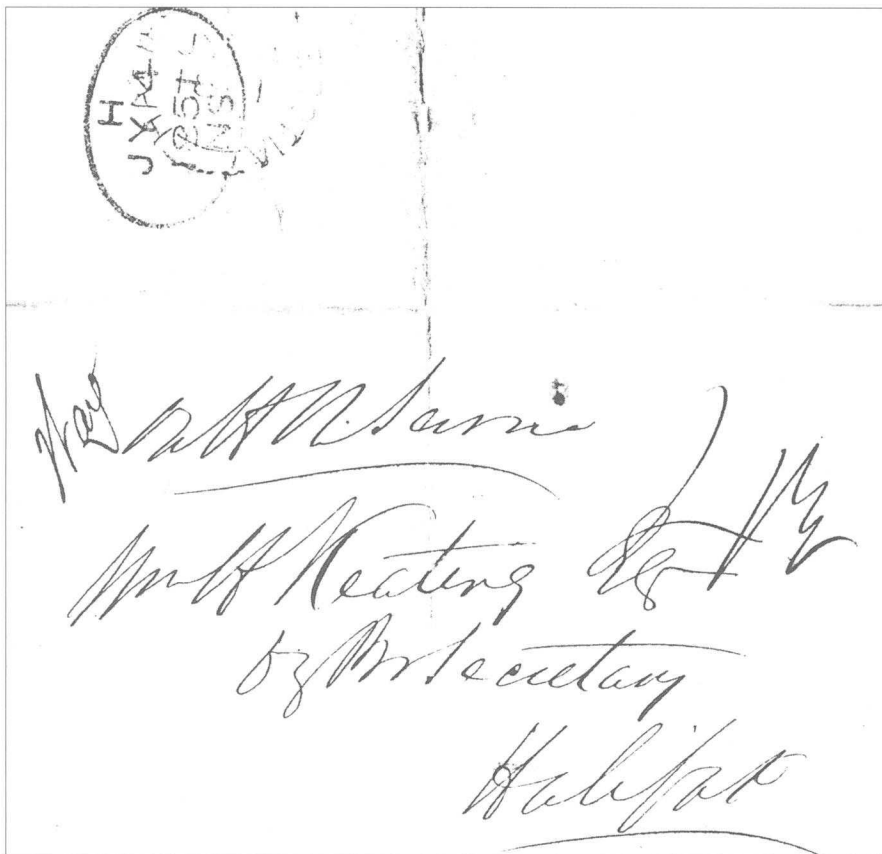 H
JY 4
1851
NS
Way
On H M Service
Wm H Keating Esqr
Dy Pro Secretary
Halifax